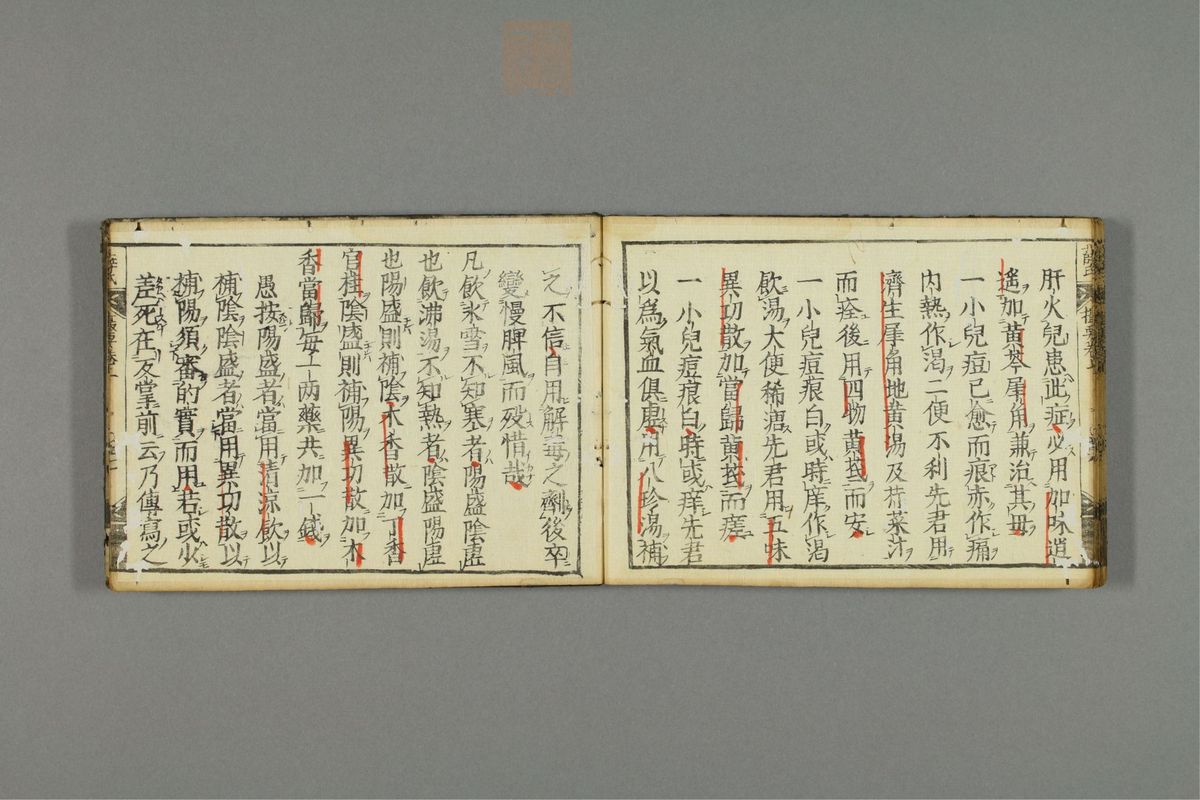 肝火兒患此症必用加味逍
遙加黃芩犀角兼治其母
一小兒痘已愈而痕赤作痛
內熱作渴二便不利先君用
濟生犀角地黃湯及芹菜汁
而痊後用四物黃芪而安
一小兒痘痕白或時痒作渴
飲湯大便稀溏先君用五味
異功散加當歸黃芪而瘥
一小兒痘痕白時或痒先君
以爲氣血俱虛用八珍湯補
之不信自用解毒之劑後卒
變慢脾風而歿惜哉
凡飲氷雪不知寒者陽盛陰虛
也飲沸湯不知熱者陰盛陽虛
也陽盛則補陰木香散加丁香
官桂陰盛則補陽異功散加木
香當歸每一兩藥共加一錢
愚按陽盛者當用清涼飲以
補陰陰盛者當用異功散以
補陽須審的實而用君或少
差死在反掌前云乃傳寫之